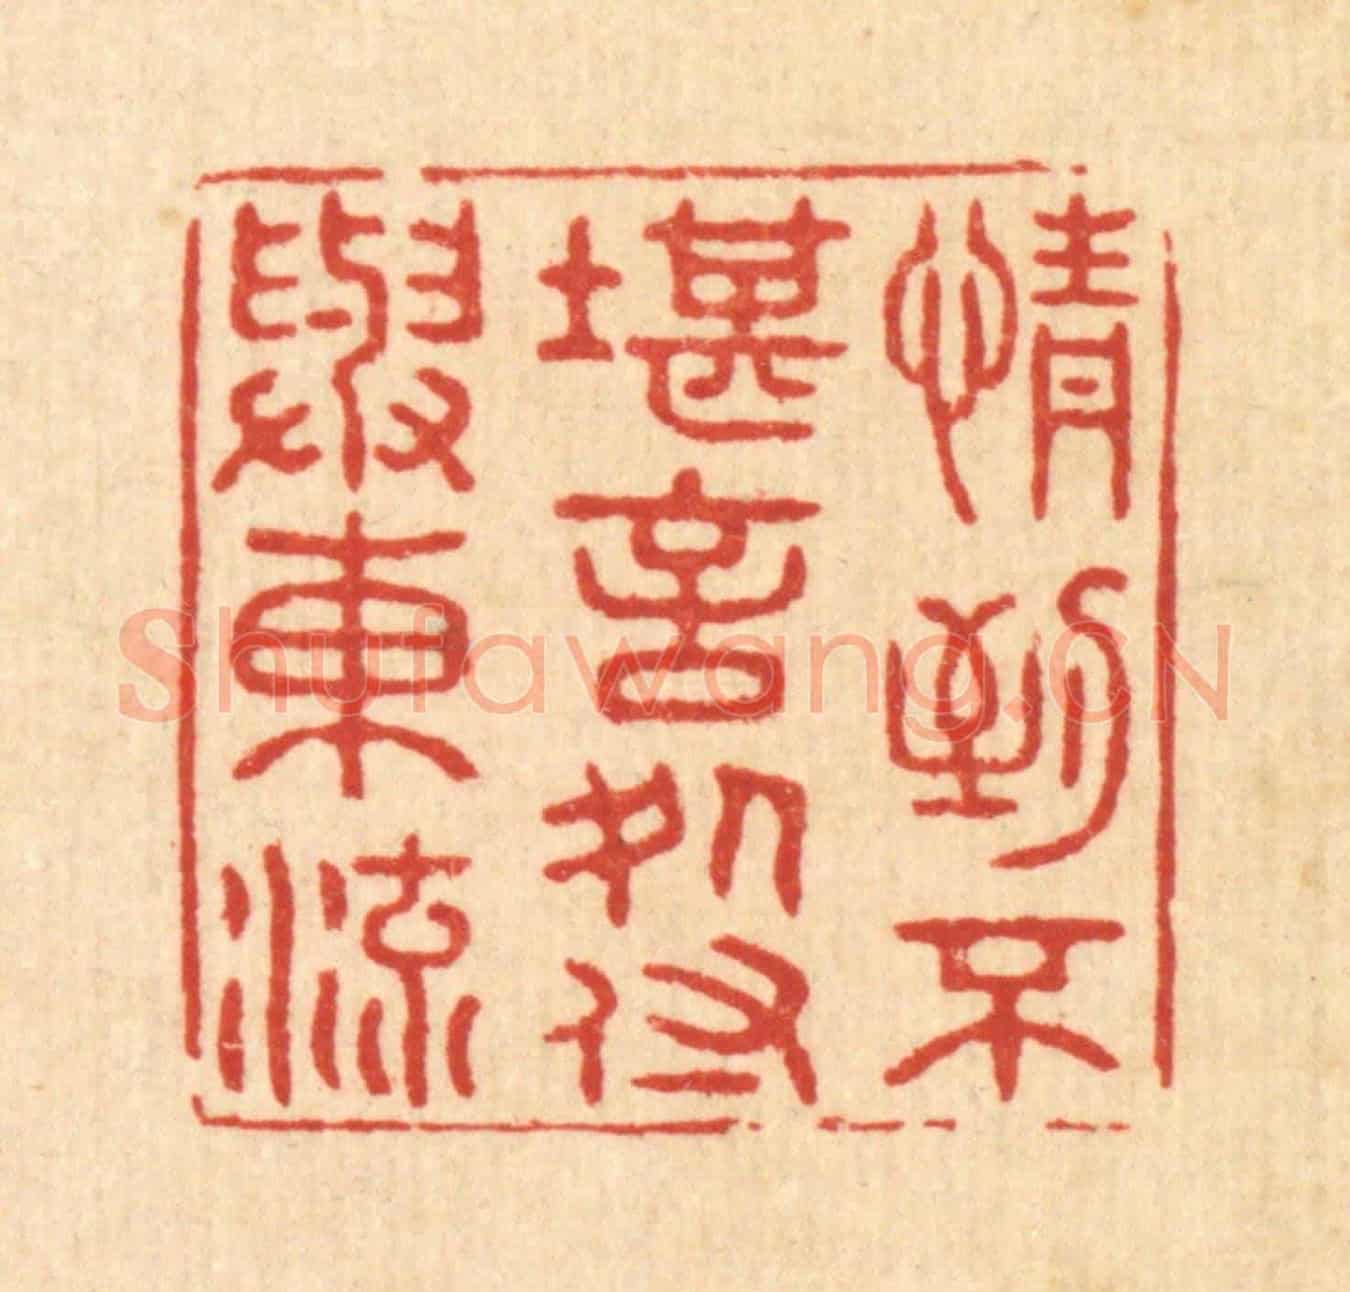 情到不
堪言処付
與東流
Shufawang.CN